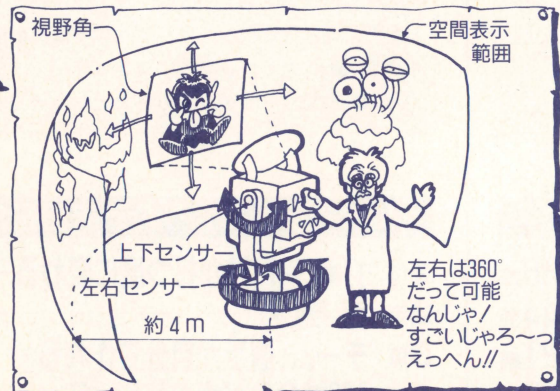 視野角
空間表示
範囲
上下センサー
左右センサー
約4m
左右は360°
だって可能
なんじゃ!
すごいじゃろ〜っ
えっへん!!